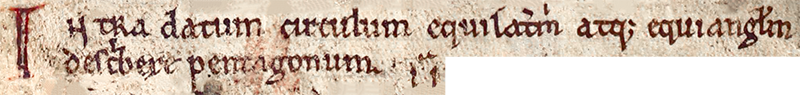 Intra datum circulum equilat̅m̅ atq; equiangl̅m
desc̅bere pentagonum.